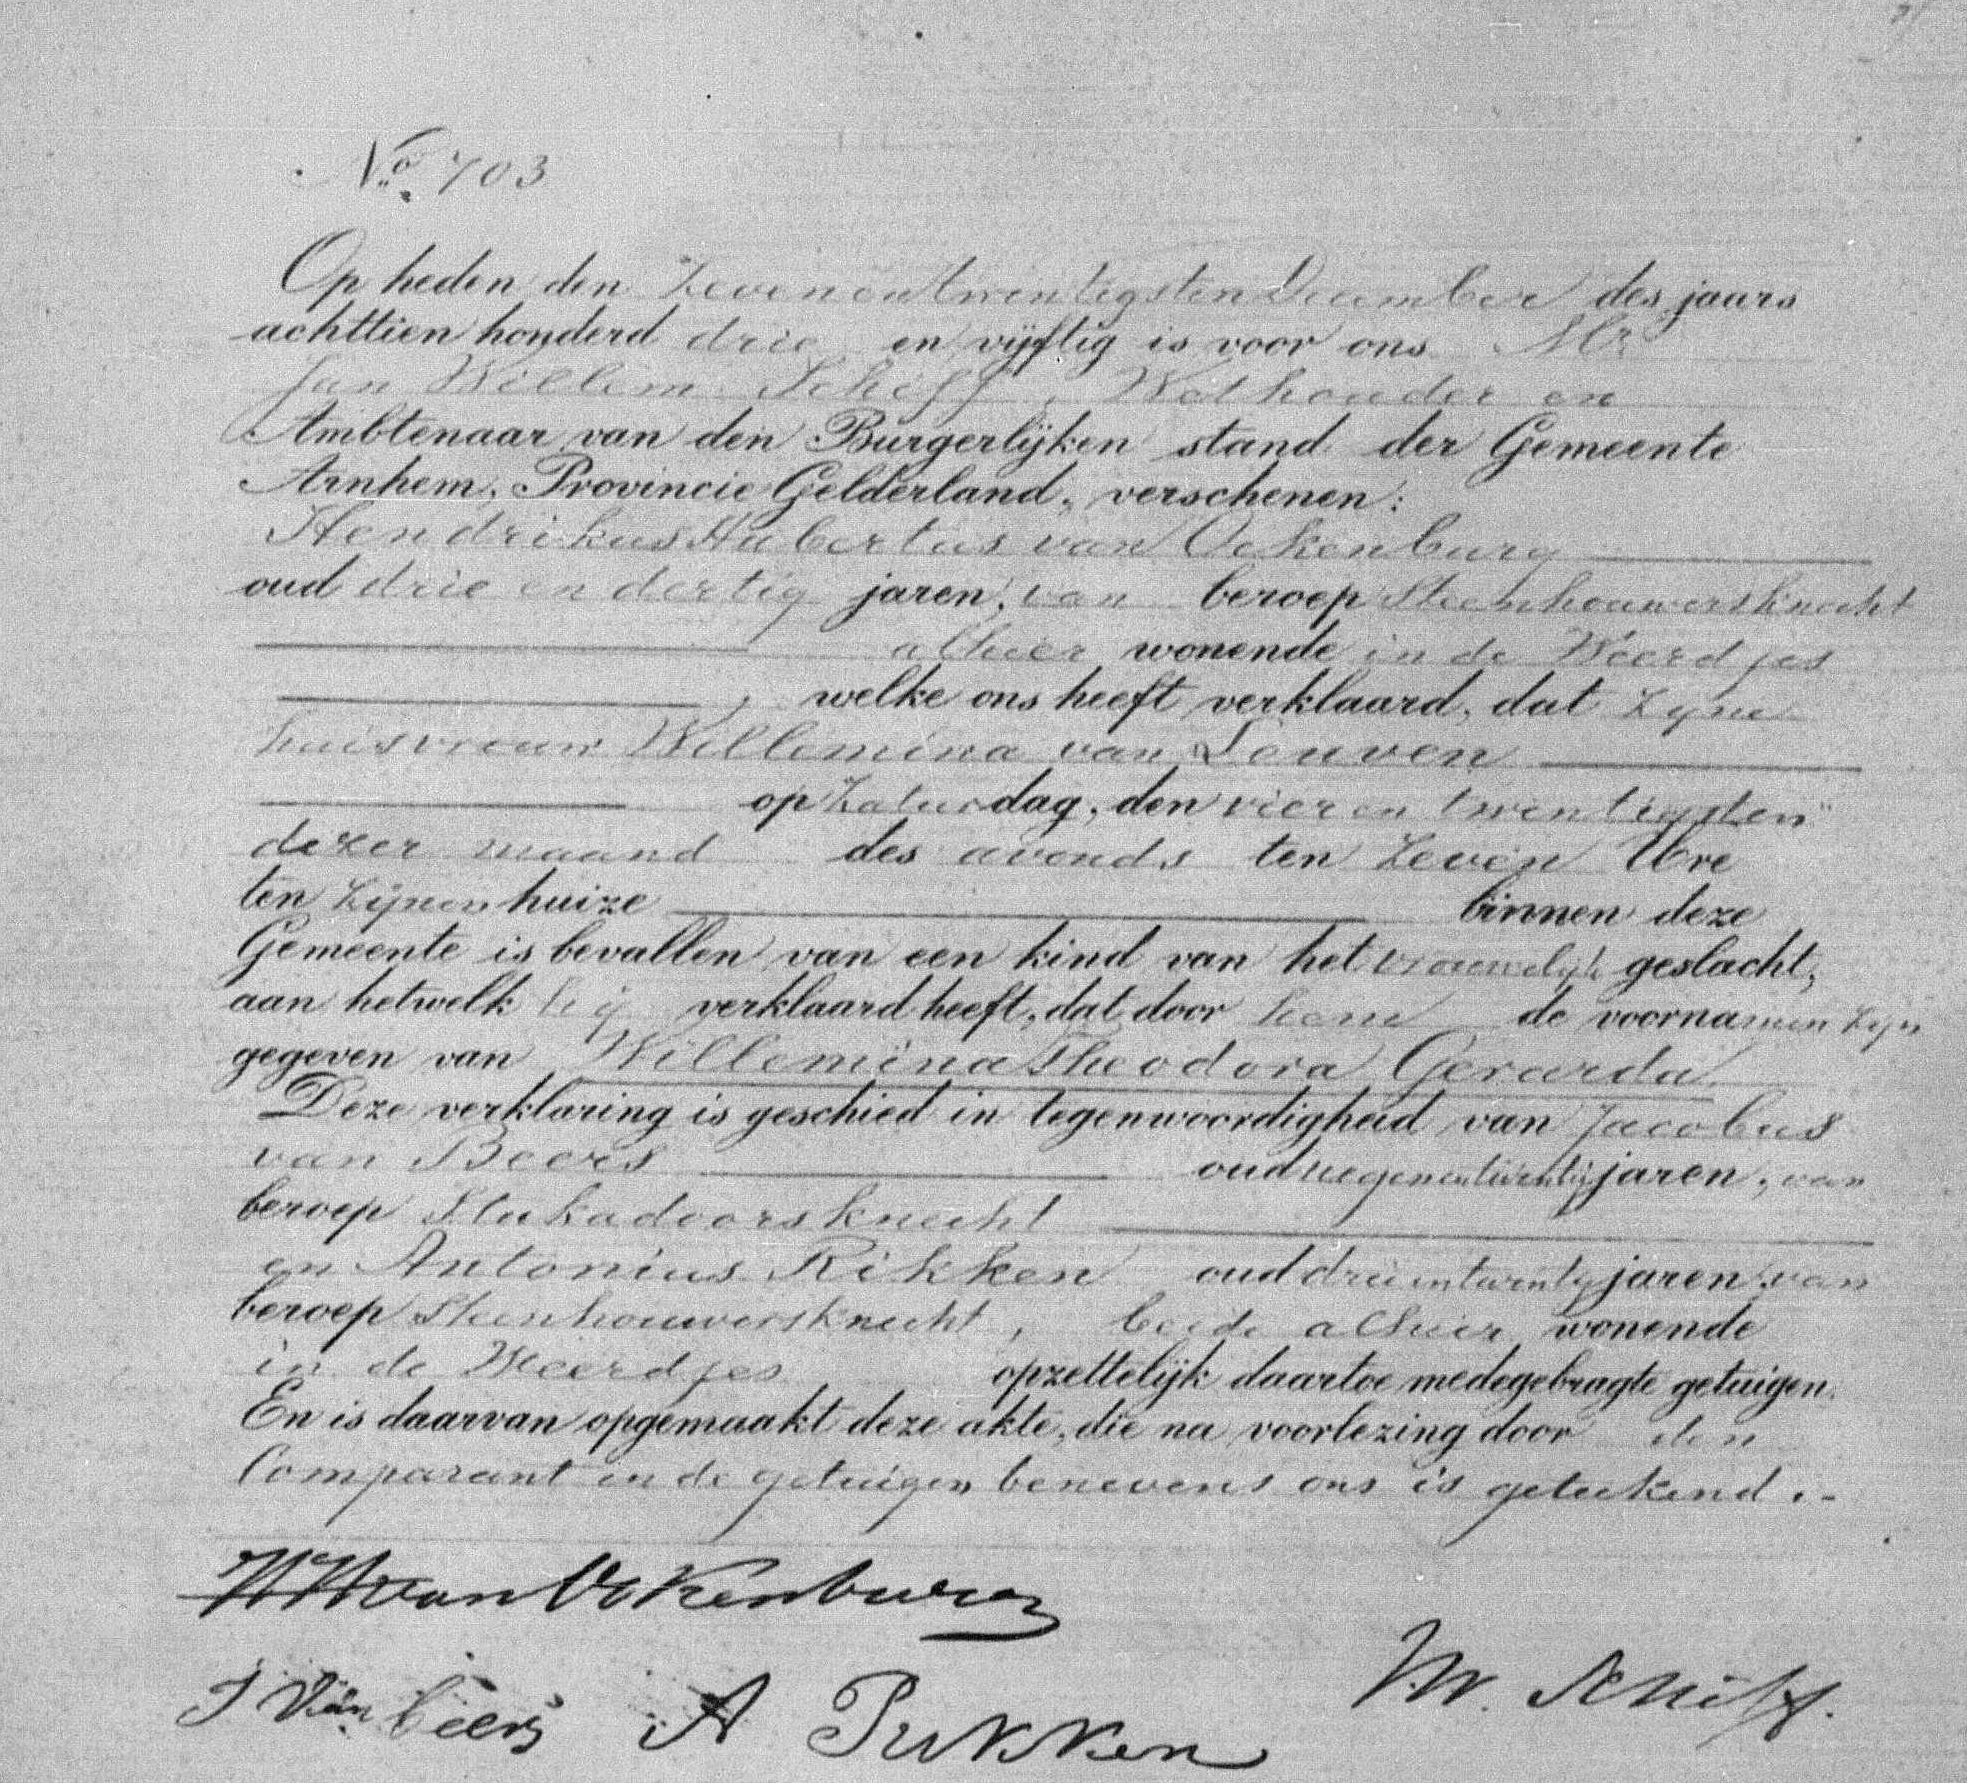 No. 703
Op heden den Zevenentwintigsten December des jaars
achttien honderd drie en vijftig is voor ons Mr
Jan Willem Schiff, Wethouder en
Ambtenaar van den Burgerlijken stand der Gemeente
Arnhem, Provincie Gelderland, verschenen:
Hendrikus Hubertus van Ockenburg
oud drie en dertig jaren, van beroep Steenhouwersknecht
alhier wonende in de Weerdjes
, welke ons heeft verklaard, dat Zyne
huisvrouw Willemina van Leuven
op Zaturdag, den vier en twintigsten
dezer maand des avonds ten Zeven Ure
ten Zijnen huize binnen deze
Gemeente is bevallen van een kind van het vrouwelijk geslacht,
aan hetwelk hij verklaard heeft, dat door hem de voornamen zijn
gegeven van Willemina Theodora Gerarda.
Deze verklaring is geschied in tegenwoordigheid van Jacobus
van Beers oud negenentwintig jaren, van
beroep Stukadoorsknecht
en Antonius Rikken oud drieentwintig jaren van
beroep Steenhouwersknecht, beide alhier wonende
in de Weerdjes opzettelijk daartoe medegebragte getuigen.
En is daarvan opgemaakt deze akte, die na voorlezing door den
Comparant en de getuigen benevens ons is geteekend.-
HHvan Ockenburg
J Van Beers A Rikken
JW. Schiff.